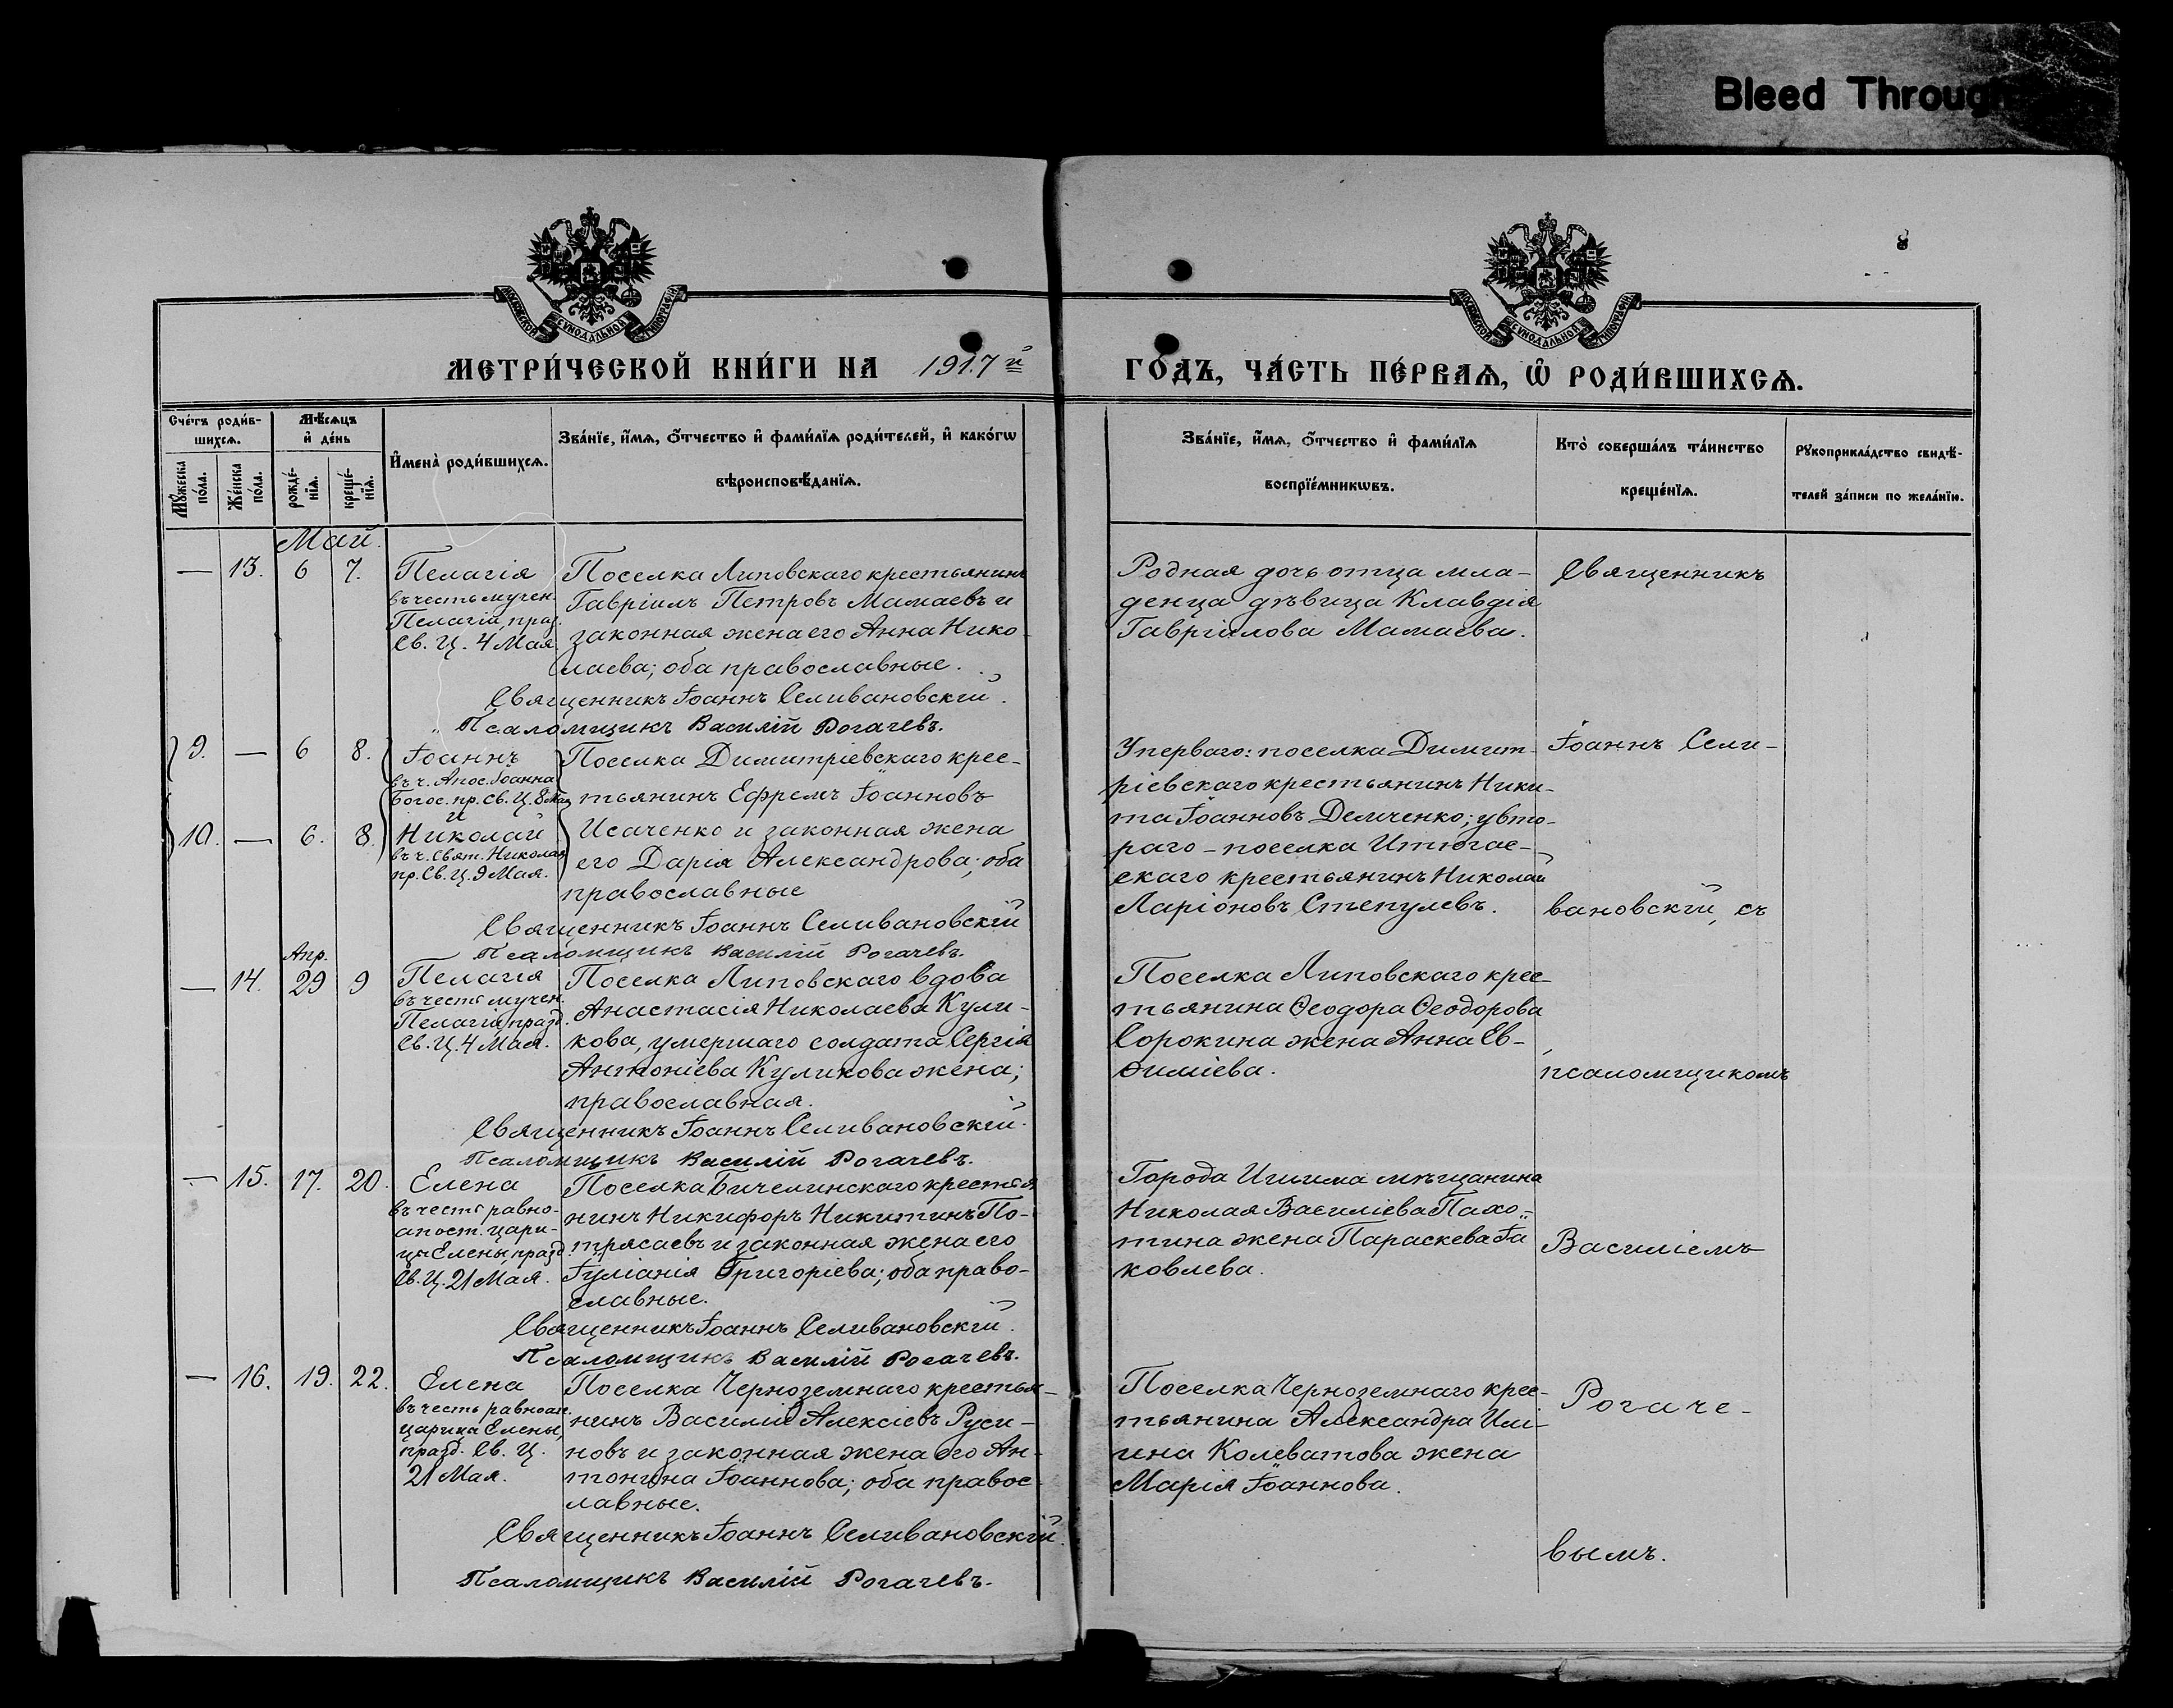 Bleed Through
8
МОСКОВСКОЙ СѴНОДАЛЬНОЙ ТИПОГРАФІИ
МОСКОВСКОЙ СѴНОДАЛЬНОЙ ТИПОГРАФІИ
МЕТРИ́ЧЕСКОЙ КНИ́ГИ НА 1917й ГО́ДЪ, ЧА́СТЬ ПЕ́РВАѦ, Ѡ РОДИ́ВШИХСѦ.
Сче́тъ роди́в-
шихсѧ.
Мꙋ́жеска
по́ла.
Же́нска
по́ла.
Мѣ́сѧцъ
и҆ де́нь
рожде́-
нїѧ.
креще́-
нїѧ.
И҆мена̀ роди́вшихсѧ.
Зва́нїе, и҆́мѧ, ѻ҆́тчество и҆ фами́лїѧ роди́телей, и҆ како́гѡ
вѣроисповѣ́данїѧ.
Зва́нїе, и҆́мѧ, ѻ҆́тчество и҆ фами́лїѧ
воспрїе́мникѡвъ.
Кто̀ соверша́лъ та́инство
креще́нїѧ.
Рꙋкоприкла́дство свидѣ́-
телей за́писи по жела́нїю.
Май.
— 13. 6 7.
Пелагія
въ честь мучен.
Пелагіи, праз.
Св. Ц. 4 Мая.
Поселка Липовскаго крестьянинъ
Гавріилъ Петровъ Мамаевъ и
законная жена его Анна Нико-
лаева; оба православные.
Священникъ Іоаннъ Селивановскій.
Псаломщикъ Василій Рогачевъ.
Родная дочь отца мла-
денца дѣвица Клавдія
Гавріилова Мамаева.
Священникъ
9. — 6 8.
Іоаннъ
въ ч. Апос. Іоанна
Богос. пр. Св. Ц. 8 Мая
и
10. — 6. 8.
Николай
въ ч. Свят. Николая
пр. Св. Ц. 9 Мая.
Поселка Димитріевскаго крес-
тьянинъ Ефремъ Іоанновъ
Исаченко и законная жена
его Дарія Александрова; оба
православные
Священникъ Іоаннъ Селивановскій
Псаломщикъ Василій Рогачевъ.
У перваго: поселка Димит-
ріевскаго крестьянинъ Ники-
та Іоанновъ Демченко; у вто-
раго - поселка Итюгас-
скаго крестьянинъ Николай
Ларіоновъ Степулевъ.
Іоаннъ Сели-
вановскій, съ
Апр.
— 14. 29 9
Пелагія
въ честь мучен.
Пелагіи, празд.
Св. Ц. 4 Мая.
Поселка Липовскаго вдова
Анастасія Николаева Кули-
кова, умершаго солдата Сергія
Антоніева Куликова жена;
православная.
Священникъ Іоаннъ Селивановскій.
Псаломщикъ Василій Рогачевъ.
Поселка Липовскаго крес-
тьянина Ѳеодора Ѳеодорова
Сорокина жена Анна Ев-
ѳиміева.
псаломщикомъ
— 15. 17. 20.
Елена
въ честь равно-
апост. цари-
цы Елены, празд.
Св. Ц. 21 Мая.
Поселка Бичелинскаго крестья
нинъ Никифоръ Никитинъ По-
трясаевъ и законная жена его
Іуліанія Григоріева; оба право-
славные.
Священникъ Іоаннъ Селивановскій.
Псаломщикъ Василій Рогачевъ.
Города Ишима мѣщанина
Николая Василіева Пахо-
тина жена Параскева Іа
ковлева.
Василіемъ
— 16. 19. 22.
Елена
въ честь равноап.
царица Елены,
празд. Св. Ц.
21 Мая.
Поселка Черноземнаго крестья-
нинъ Василій Алексіевъ Руси-
новъ и законная жена его Ан-
тонина Іоаннова; оба правос-
лавные.
Священникъ Іоаннъ Селивановскій.
Псаломщикъ Василій Рогачевъ.
Поселка Черноземнаго крес-
тьянина Александра Илі-
ина Колеватова жена
Марія Іоаннова.
Рогаче-
вымъ.